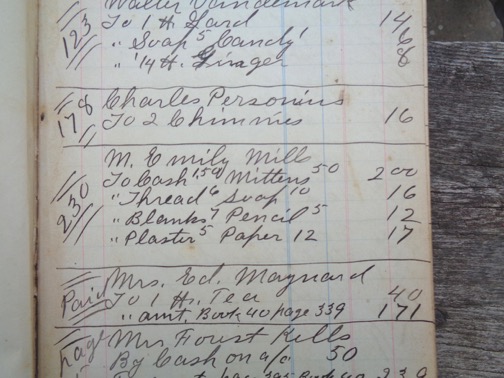 Walter Vandemark
123 To 1 H. Lard 14
" Soap 5 Candy 1 6
" 1/4 H. Ginger 8
Charles Personius
178 To 2 Chimnies 16
M. Emily Mills
230 To Cash 150 Mittens 50 200
" Thread 6 Soap 10 16
" Blanks 7 Pencil 5 12
" Plaster 5 Paper 12 17
Mrs. Ed. Maynard
Paid To 1 H. Tea 40
" amt. Book 40 page 339 171
page Mrs. Forest Kells
By Cash on a/c 50